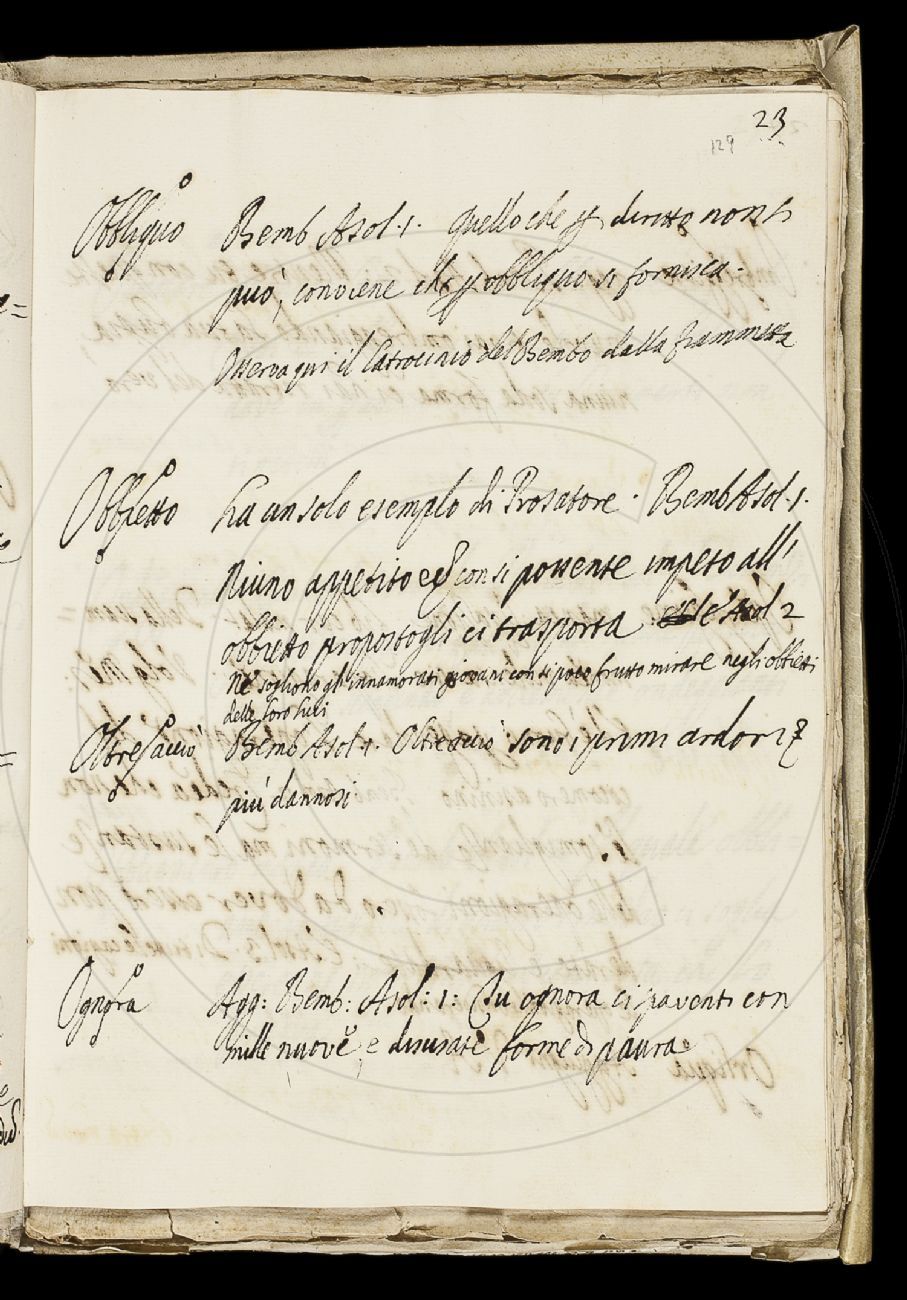 23
129
Obbliquo Bemb Asol. 1. quello che ꝑ diritto non si
può, conviene che ꝑ obbliquo si fornisca.
Osserva qui il latrocinio del Bembo dalla fiammetta
Obbietto ha un solo esemplo di Prosatore. Bemb Asol. 1.
Niuno appetito con si possente impeto all'
obbietto propostogli ci trasporta Asol 2
Ne sogliono gl'innamorati giovani con si poco frutto mirare negli obbietti
delle loro luci
Oltre acciò Bemb Asol. 1. Oltreacciò sono i primi ardori
più dannosi
Ognora Agg: Bemb: Asol: 1: Tu ognora ci paventi con
mille nuove, e disusate forme di paura